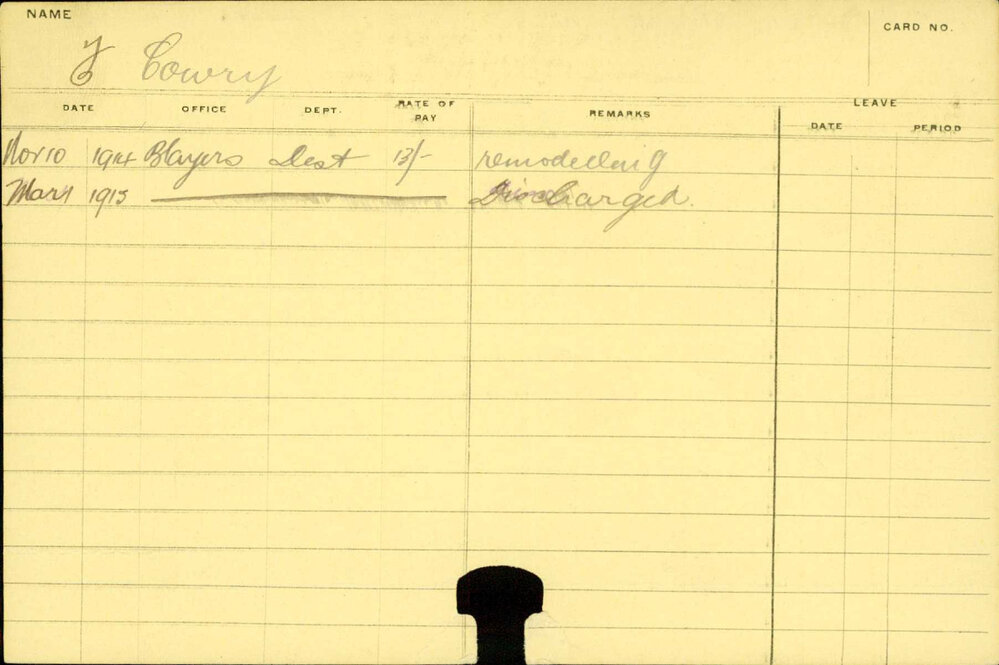 NAME
CARD NO.
F Cowry
DATE OFFICE DEPT. RATE OF PAY REMARKS LEAVE
DATE PERIOD
Nov 10 1914 Blayers Dest 13/- remodelling
Mar 1 1915 Discharged.